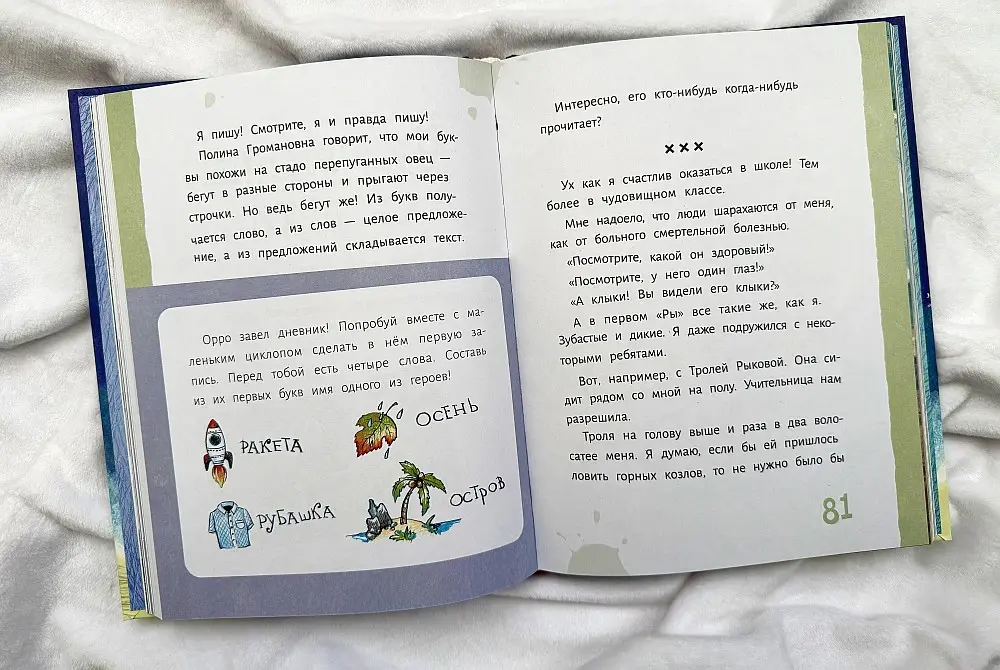 Я пишу! Смотрите, я и правда пишу!
Полина Громановна говорит, что мои бук-
вы похожи на стадо перепуганных овец —
бегут в разные стороны и прыгают через
строчки. Но ведь бегут же! Из букв полу-
чается слово, а из слов — целое предложе-
ние, а из предложений складывается текст.
Орро завел дневник! Попробуй вместе с ма-
леньким циклопом сделать в нём первую за-
пись. Перед тобой есть четыре слова. Составь
из их первых букв имя одного из героев!
РАКЕТА
ОСЕНЬ
РУБАШКА
ОСТРОВ
Интересно, его кто-нибудь когда-нибудь
прочитает?
×××
Ух как я счастлив оказаться в школе! Тем
более в чудовищном классе.
Мне надоело, что люди шарахаются от меня,
как от больного смертельной болезнью.
«Посмотрите, какой он здоровый!»
«Посмотрите, у него один глаз!»
«А клыки! Вы видели его клыки?»
А в первом «Ры» все такие же, как я.
Зубастые и дикие. Я даже подружился с неко-
торыми ребятами.
Вот, например, с Тролей Рыковой. Она си-
дит рядом со мной на полу. Учительница нам
разрешила.
Троля на голову выше и раза в два воло-
сатее меня. Я думаю, если бы ей пришлось
ловить горных козлов, то не нужно было бы
81